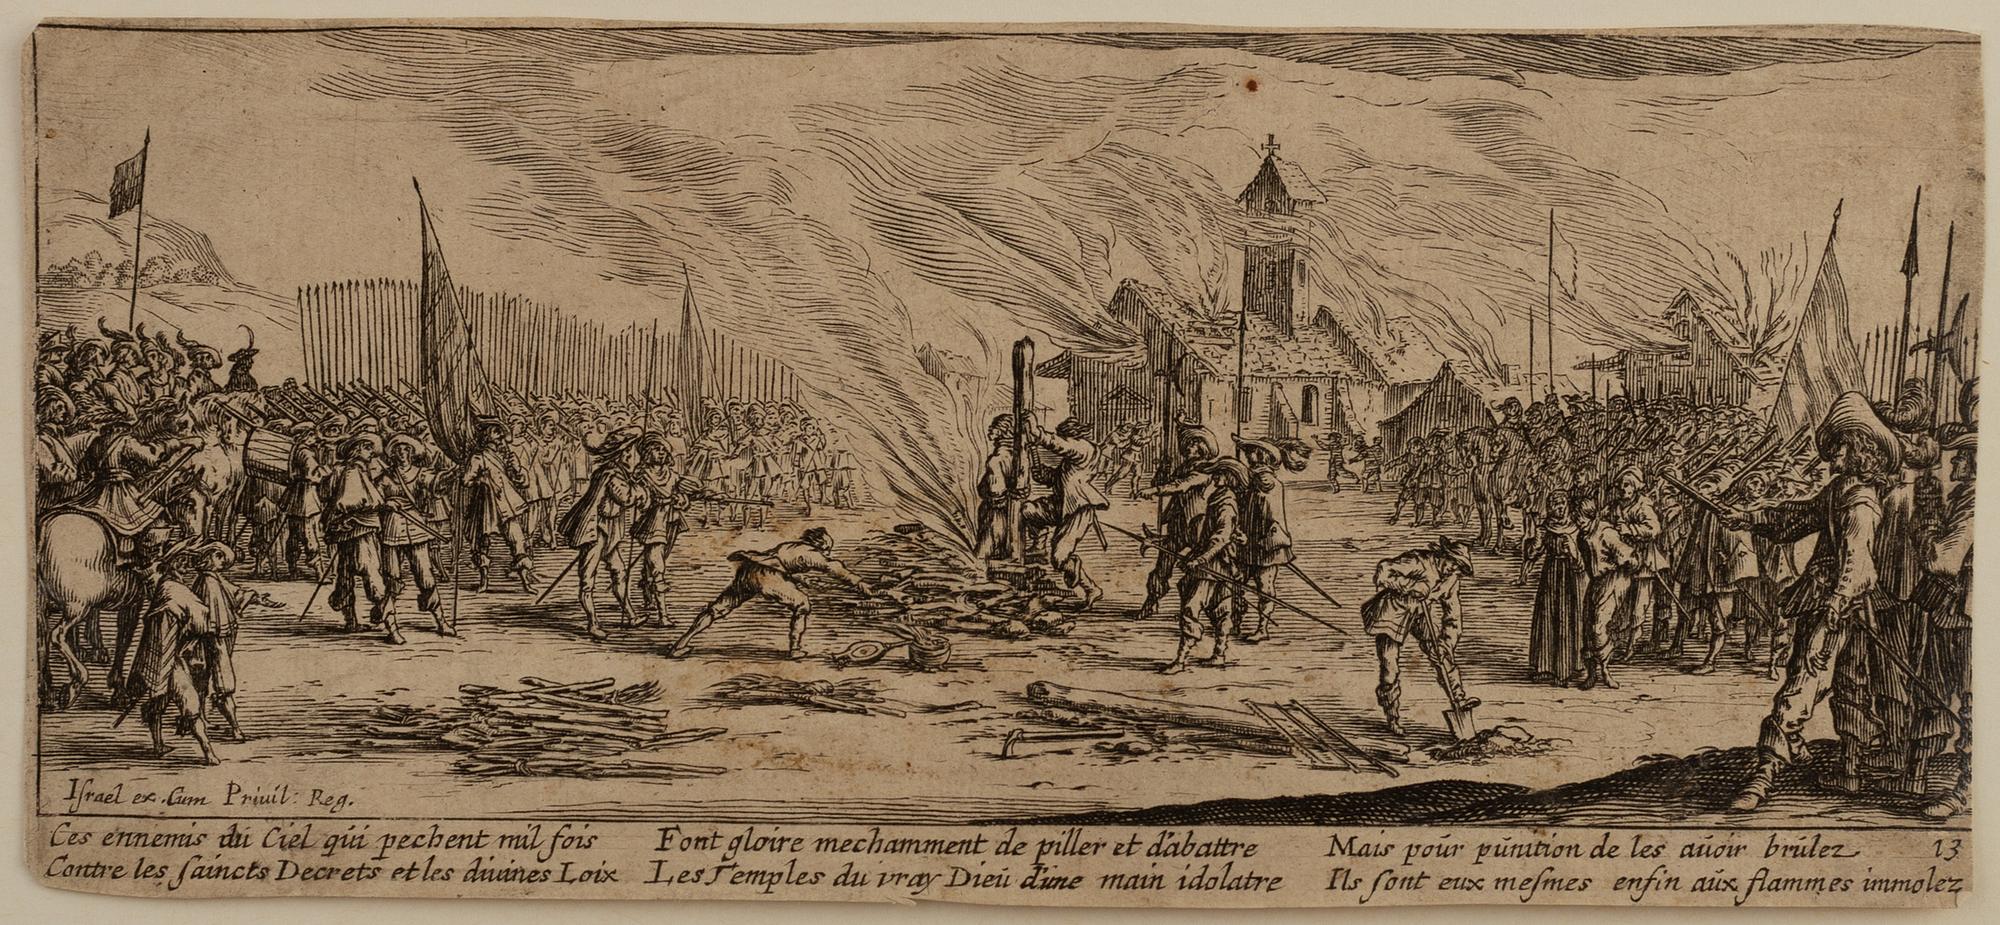 Iſrael ex. Cum Priuil: Reg.
Ces ennemis du Ciel qui pechent mil fois
Contre les ſaincts Decrets et les diuines Loix
Font gloire mechamment de piller et d'abattre
Les Temples du vray Dieu d'une main idolatre
Mais pour punition de les auoir brulez
Ils ſont eux meſmes enfin aux flammes immolez
13